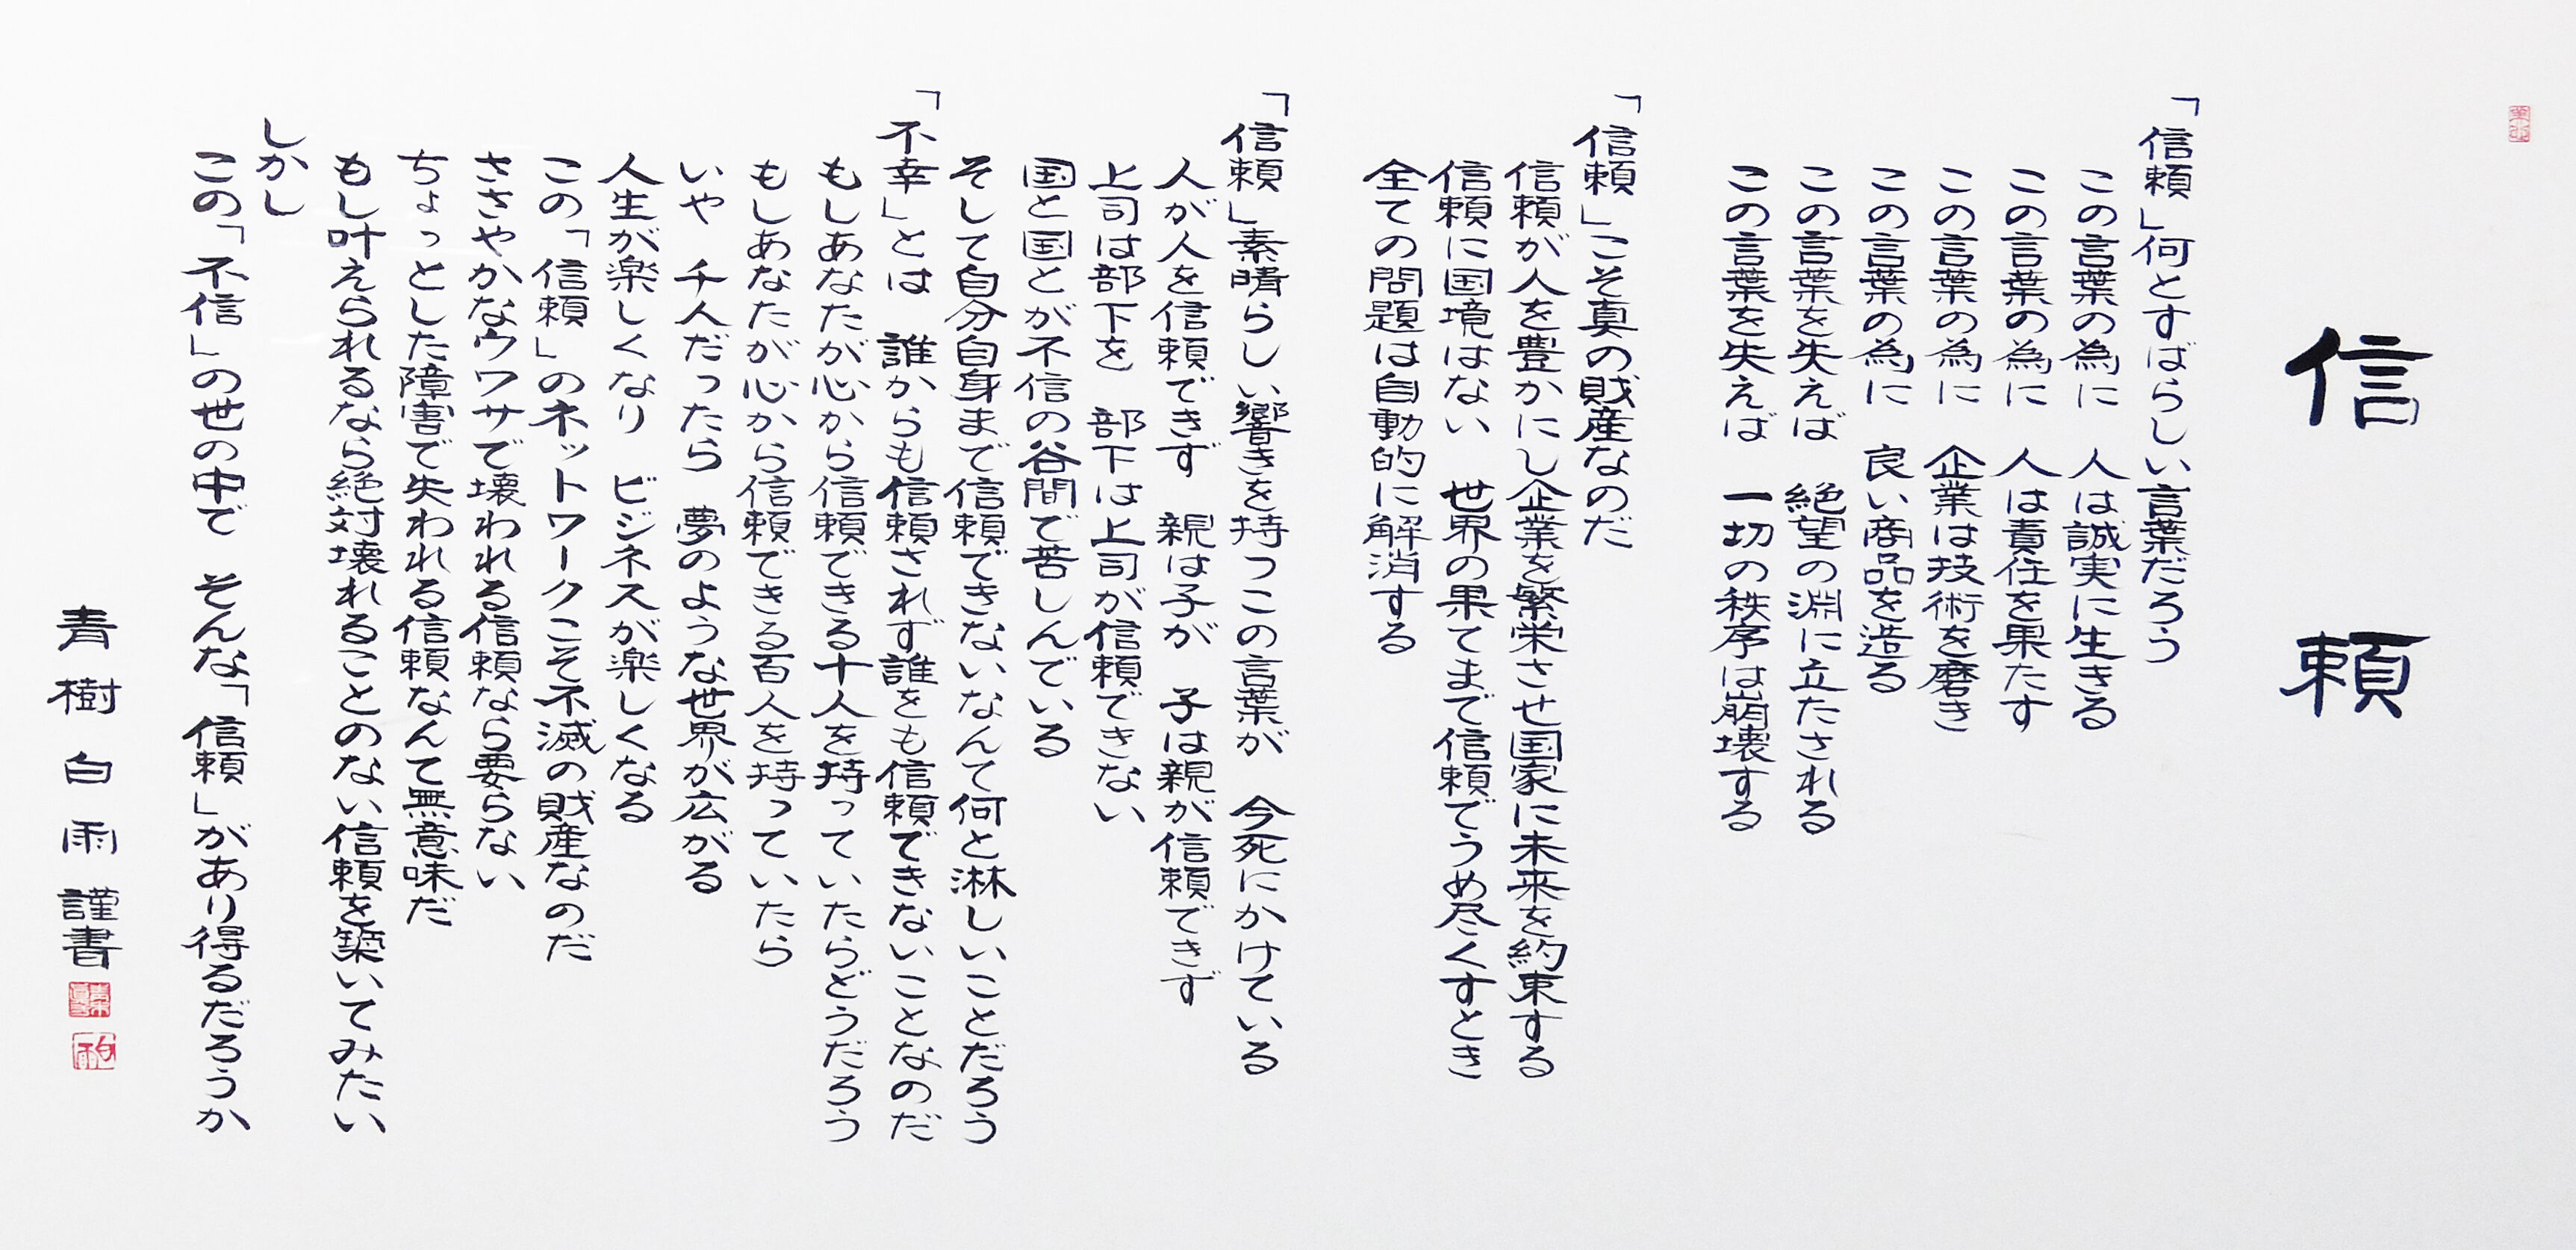 信頼
「信頼」何とすばらしい言葉だろう
この言葉の為に　人は誠実に生きる
この言葉の為に　人は責任を果たす
この言葉の為に　企業は技術を磨き
この言葉の為に　良い商品を造る
この言葉を失えば　絶望の淵に立たされる
この言葉を失えば　一切の秩序は崩壊する
「信頼」こそ真の財産なのだ
信頼が人を豊かにし企業を繁栄させ国家に未来を約束する
信頼に国境はない　世界の果てまで信頼でうめ尽くすとき
全ての問題は自動的に解消する
「信頼」素晴らしい響きを持つこの言葉が　今死にかけている
人が人を信頼できず　親は子が　子は親が信頼できず
上司は部下を　部下は上司が信頼できない
国と国とが不信の谷間で苦しんでいる
そして自分自身まで信頼できないなんて何と淋しいことだろう
「不幸」とは　誰からも信頼されず誰をも信頼できないことなのだ
もしあなたが心から信頼できる十人を持っていたらどうだろう
もしあなたが心から信頼できる百人を持っていたら
いや　千人だったら　夢のような世界が広がる
人生が楽しくなり　ビジネスが楽しくなる
この「信頼」のネットワークこそ不滅の財産なのだ
ささやかなウワサで壊われる信頼なら要らない
ちょっとした障害で失われる信頼なんて無意味だ
もし叶えられるなら絶対壊れることのない信頼を築いてみたい
しかし
この「不信」の世の中で　そんな「信頼」があり得るだろうか
青樹白雨謹書